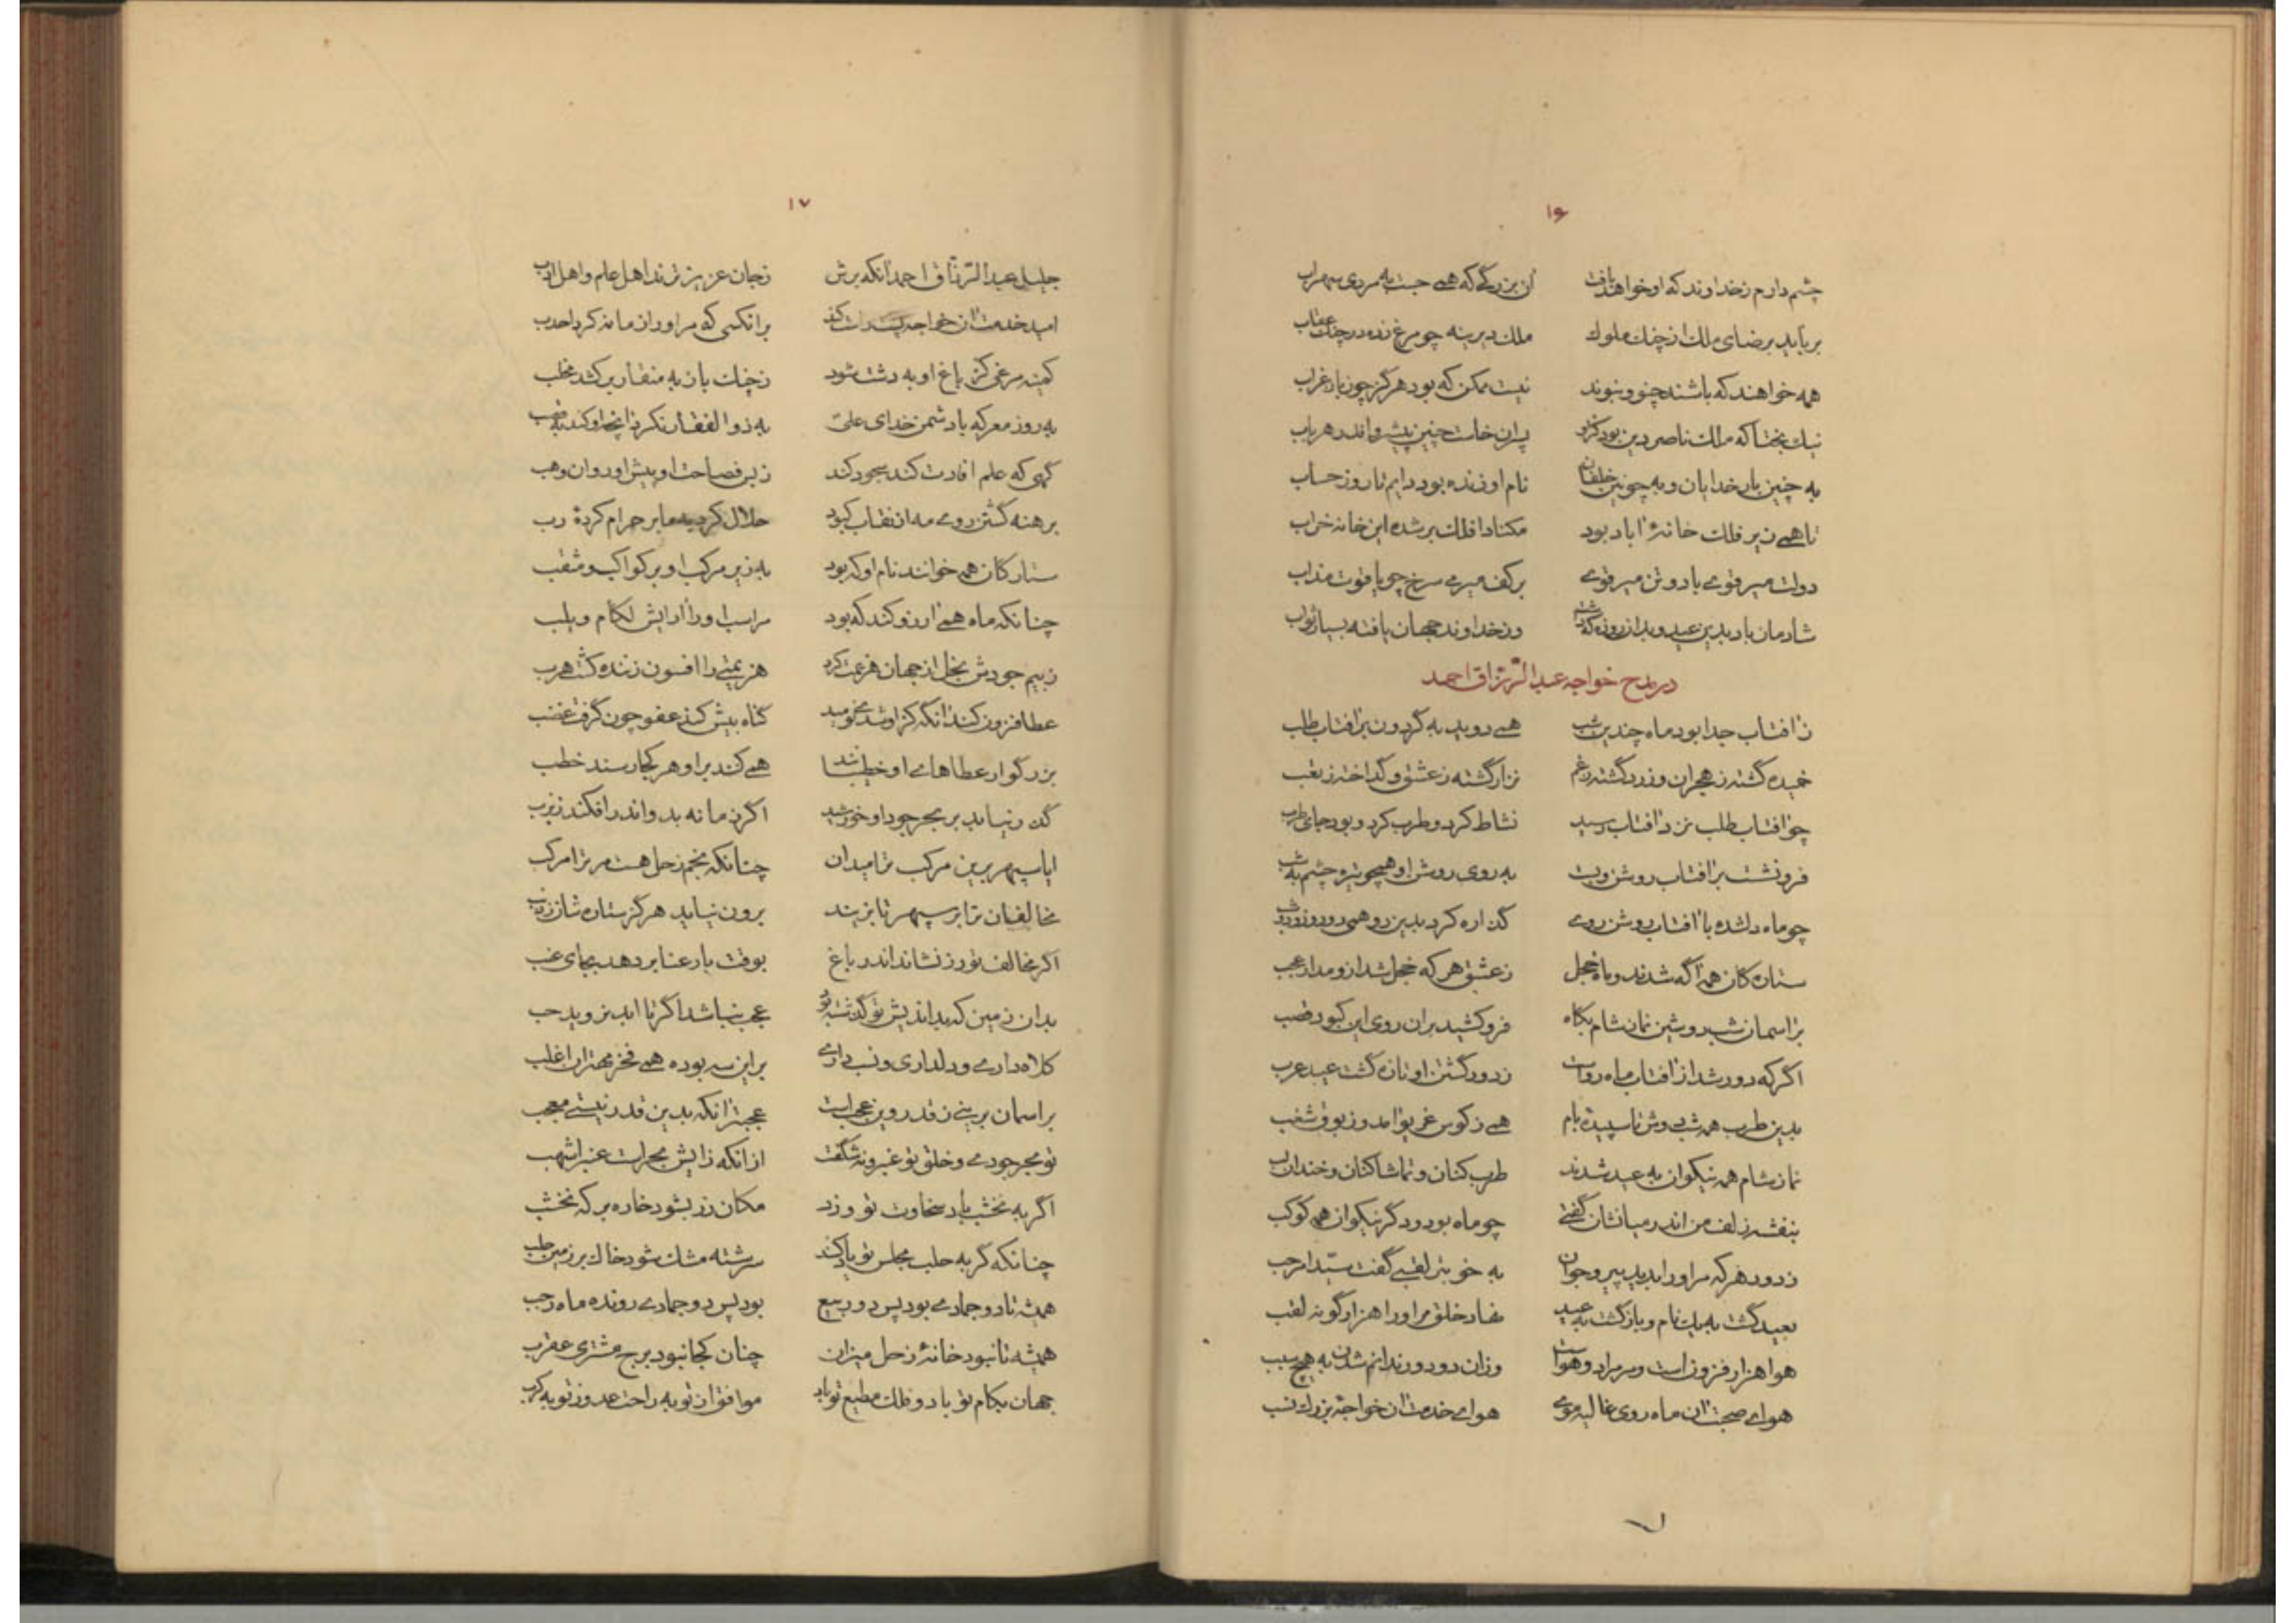 ۱۶
چشم دارم ز خداوند که او خواهد یافت آن بزرگی که همی جست به مردی سهراب
برباید برضای ملک از چنگ ملوک ملک دیرینه چو مرغ زده در چنگ عقاب
همه خواهند که باشند چنو و نبوند نیست ممکن که بود هرگز چون باز غراب
نیک بختا که ملک ناصر دین بود کزو پسران خاست چنین پیشرو اندر هر باب
به چنین بار خدایان و به چونین خلفان نام او زنده بود دایم تا روز حساب
تا همی زیر فلک خانهٔ آباد بود مکناد افلک برشده این خانه خراب
دولت میر قوی باد و تن میر قوی بر کف میر می سرخ چو یاقوت مذاب
شادمان باد بدین عید و بدان روزه که داشت وز خداوند جهان یافته بسیار ثواب
در مدح خواجه عبدالرزاق احمد
ز آفتاب جدا بود ماه چندین شب همی دوید به گردون بر آفتاب طلب
خمیده گشته ز هجران و زرد گشته ز غم نزار گشته ز عشق و گداخته ز تعب
چو آفتاب طلب نزد آفتاب رسید نشاط کرد و طرب کرد و بود جای طرب
فرو نشست بر آفتاب روشن و بست به روی روشن او همچو تیره چشم به شب
چو ماه دلشده با آفتاب روشن روی گذاره کرد بدین روهمی دو روز و دو شب
ستارگان همه آگه شدند و ماه خجل ز عشق هر که خجل شد ازو مدار عجب
بر آسمان شب دوشین نماز شام پگاه فرو کشید بران روی این کبود قصب
اگر که دور شد از آفتاب ماه رواست ز دور گشتن او تازه گشت عید عرب
بدین طرب همه شب دوش تا سپیده بام همی ز کوس غریو آمد و ز بوق شغب
نماز شام همه نیکوان به عید شدند طرب کنان و تماشا کنان و خندان لب
بنفشه زلف من اندر میانشان گفتی چو ماه بود و دگر نیکوان همه کوکب
ز دور هر که مر او را بدید پیر و جوان به خوبتر لقبی گفت سیدا مرحب
بعید گشت به یک نام و بازگشت به عید نهاد خلق مر او را هزار گونه لقب
هوا هزار فزون است و سر مراد و هواست وزان دو دور ندانم شدن به هیچ سبب
هوای صحبت آن ماه روی غالیه موی هوای خدمت آن خواجهٔ بزرگ نسب
۱۷
جلیل عبدالرزاق احمد آنکه برش ز جان عزیزترند اهل علم و اهل ادب
امید خدمت آن خواجه پشت راست کند بر آنکسی که مر او را زمانه کرد احدب
کمینه مرغی کز باغ او به دشت شود ز چنگ باز به منقار بر کشد مخلب
به روز معرکه با دشمن خدای علی به ذوالفقار نکرد آنچه او کند به قصب
گهی که علم افادت کند سجود کند ز بس فصاحت او پیش او روان وهب
برهنه گشتن روی مه از نقاب کبود حلال کرد به ما بر حرام کردهٔ رب
ستارگان همه خوانند نام او که بود به زیر مرکب او بر کواکب و مثقب
چنانکه ماه همی آرزو کند که بود مر اسب او را آرایش لگام و یلب
ز بیم جودش بخل از جهان هزیمت کرد هزیمتی را افسون زننده گشت هرب
عطا فزون کند آنگه کزو شد نومید گناه بیش کند عفو چون گرفت غضب
بزرگوار عطاهای او خطیب شد همی کند بر او هر کجا رسند خطب
گذر نیابد بر بحر جود او خورشید اگر زمانه بدو اندر افکند زبزب
ایا سپهر برین مرکب ترا میدان چنانکه نجم زحل هست مر ترا مرکب
مخالفان ترا بر سپهر تا بزیند برون نیاید هرگز ستاره شان ز ذنب
اگر مخالف تو رز نشاند اندر باغ بوقت بار عنا بر دهد بجای عنب
بدان زمین که بداندیش تو گذشته بود عجب نباشد اگر تا ابد نروید حب
کلاه داری و دلداری و نسب داری بر این سه بوده همی فخر مهتران اغلب
بر آسمان برینی ز قدر وین عجب است عجبتر آنکه بدین قدر نیستی معجب
تو بحر جودی و خلق تو عنبر و نه شگفت از آنکه زایش بحرست عنبر اشهب
اگر به نخشب باد سخاوت تو وزد مکان زر بشود خاره بر که نخشب
چنانکه گر به حلب مجلس تو یاد کنند سرشته مشک شود خاک بر زمین حلب
همیشه تا دو جمادی بود پس دو ربیع بود پس دو جمادی رونده ماه رجب
همیشه تا نبود خانهٔ زحل میزان چنان کجا نبود برج مشتری عقرب
جهان بکام تو باد و فلک مطیع تو باد موافق از تو به راحت عدو ز تو به کرب